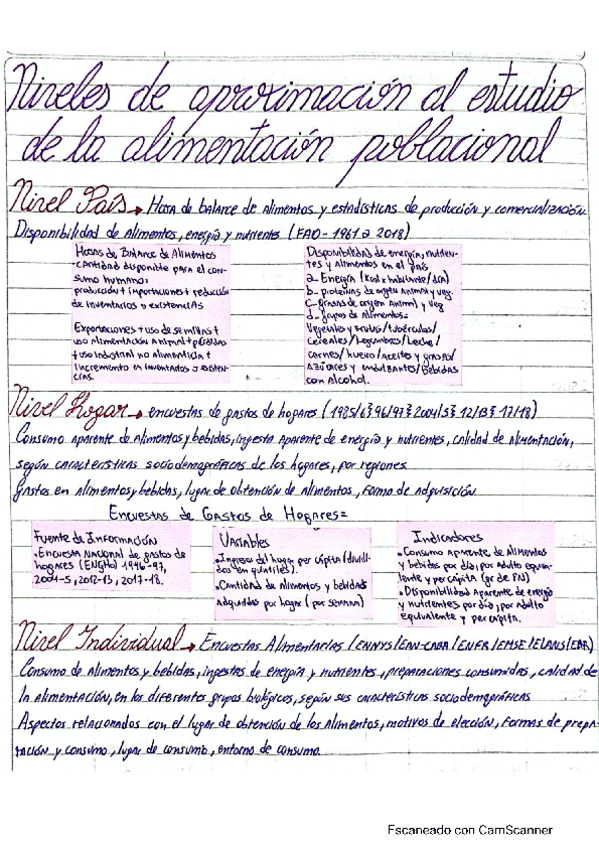 Niveles de aproximación al estudio
de la alimentación poblacional
Nivel País → Hoja de balance de alimentos y estadísticas de producción y comercialización.
Disponibilidad de alimentos, energía y nutrientes (FAO - 1961 a 2018)
Hojas de Balance de Alimentos
- cantidad disponible para el con-
sumo humano:
producción + importaciones + reducción
de inventarios o existencias
Exportaciones + uso de semillas +
uso alimentación animal + pérdidas
+ uso industrial no alimenticia +
incremento en inventarios o existen-
cias.
Disponibilidad de energía, nutrien-
tes y alimentos en el país
a- Energía (kcal x habitante/día)
b- proteínas de origen animal y veg.
c- grasas de origen animal y veg
d- grupos de alimentos=
Vegetales y frutas/tubérculos/
cereales/legumbres/leche/
carnes/huevo/aceites y grasas/
azúcares y endulzantes/bebidas
con alcohol.
Nivel Hogar → encuestas de gastos de hogares (1985/6 96/97 2004/5 12/13 17/18)
Consumo aparente de alimentos y bebidas, ingesta aparente de energía y nutrientes, calidad de alimentación,
según características sociodemográficas de los hogares, por regiones
Gastos en alimentos y bebidas, lugar de obtención de alimentos, forma de adquisición.
Encuestas de Gastos de Hogares=
Fuente de Información
• Encuesta Nacional de gastos de
hogares (ENGHo) 1996-97,
2004-5, 2012-13, 2017-18.
Variables
• Ingresos del hogar per cápita (dividi-
dos en quintiles).
• Cantidad de alimentos y bebidas
adquiridos por hogar (por semana)
Indicadores
• Consumo aparente de alimentos
y bebidas por día, por adulto equiva-
lente y per cápita (gr de PN)
• Disponibilidad aparente de energía
y nutrientes por día, por adulto
equivalente y per cápita.
Nivel Individual → Encuestas Alimentarias (ENNYS/EAN-CABA/ENFR/EMSE/ELANS/EAR)
Consumo de alimentos y bebidas, ingestas de energía y nutrientes, preparaciones consumidas, calidad de
la alimentación, en los diferentes grupos biológicos, según sus características sociodemográficas
Aspectos relacionados con el lugar de obtención de los alimentos, motivos de elección, formas de prepa-
ración y consumo, lugar de consumo, entorno de consumo.
Escaneado con CamScanner